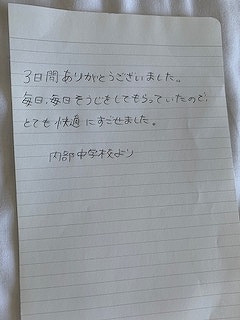 3日間ありがとうございました。
毎日、毎日そうじをしてもらっていたので、
とても快適にすごせました。
内部中学校より